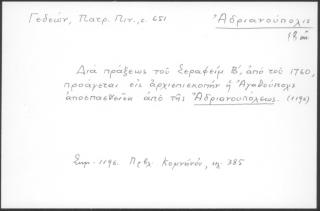 Γεδεών, Πατρ. Πιν., σ. 651
Ἀδριανούπολις
Διὰ πράξεως τοῦ Σεραφεὶμ Β΄, ἀπὸ τοῦ 1760,
προάγεται εἰς ἀρχιεπισκοπὴν ἡ Ἀγαθούπολις
ἀποσπασθεῖσα ἀπὸ τῆς Ἀδριανουπόλεως. (1196)
Σημ. 1196. Πρβλ. Κομνηνόν, σελ. 385